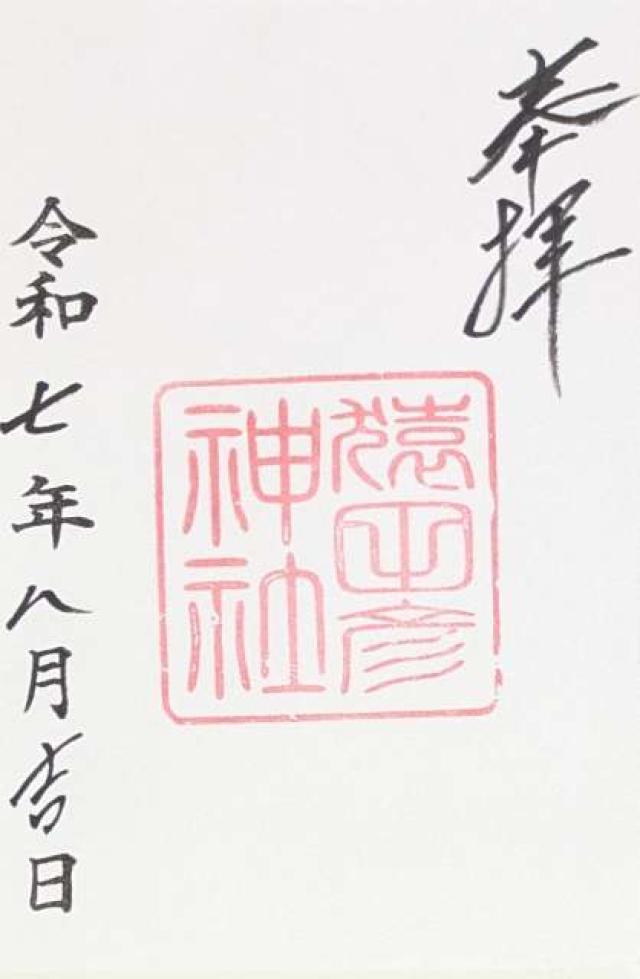 奉拝
猿田彦
神社
令和七年八月吉日